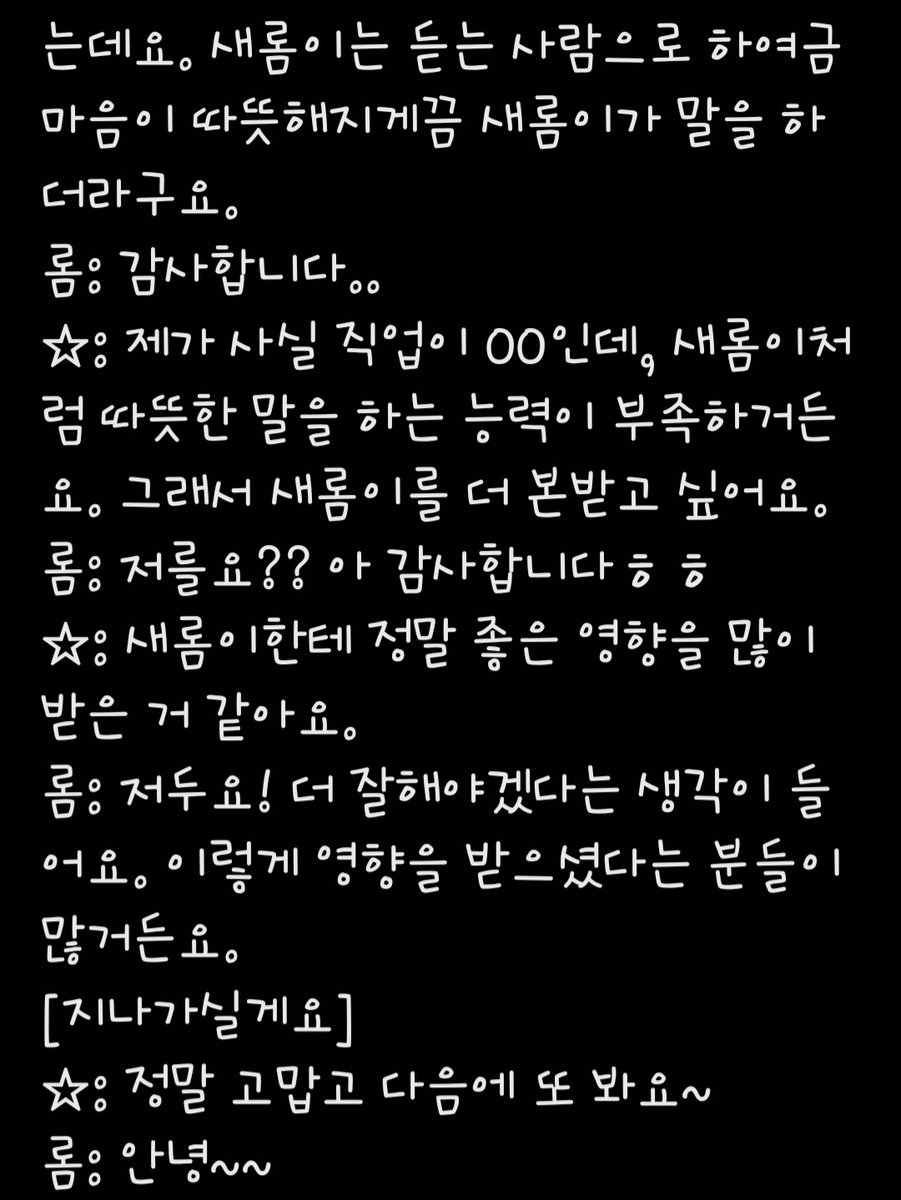 는데요. 새롬이는 듣는 사람으로 하여금
마음이 따뜻해지게끔 새롬이가 말을 하
더라구요.
롬: 감사합니다..
☆: 제가 사실 직업이 00인데, 새롬이처
럼 따뜻한 말을 하는 능력이 부족하거든
요. 그래서 새롬이를 더 본받고 싶어요.
롬: 저를요?? 아 감사합니다ㅎㅎ
☆: 새롬이한테 정말 좋은 영향을 많이
받은 거 같아요.
롬: 저두요! 더 잘해야겠다는 생각이 들
어요. 이렇게 영향을 받으셨다는 분들이
많거든요.
[지나가실게요]
☆: 정말 고맙고 다음에 또 봐요~
롬: 안녕~~